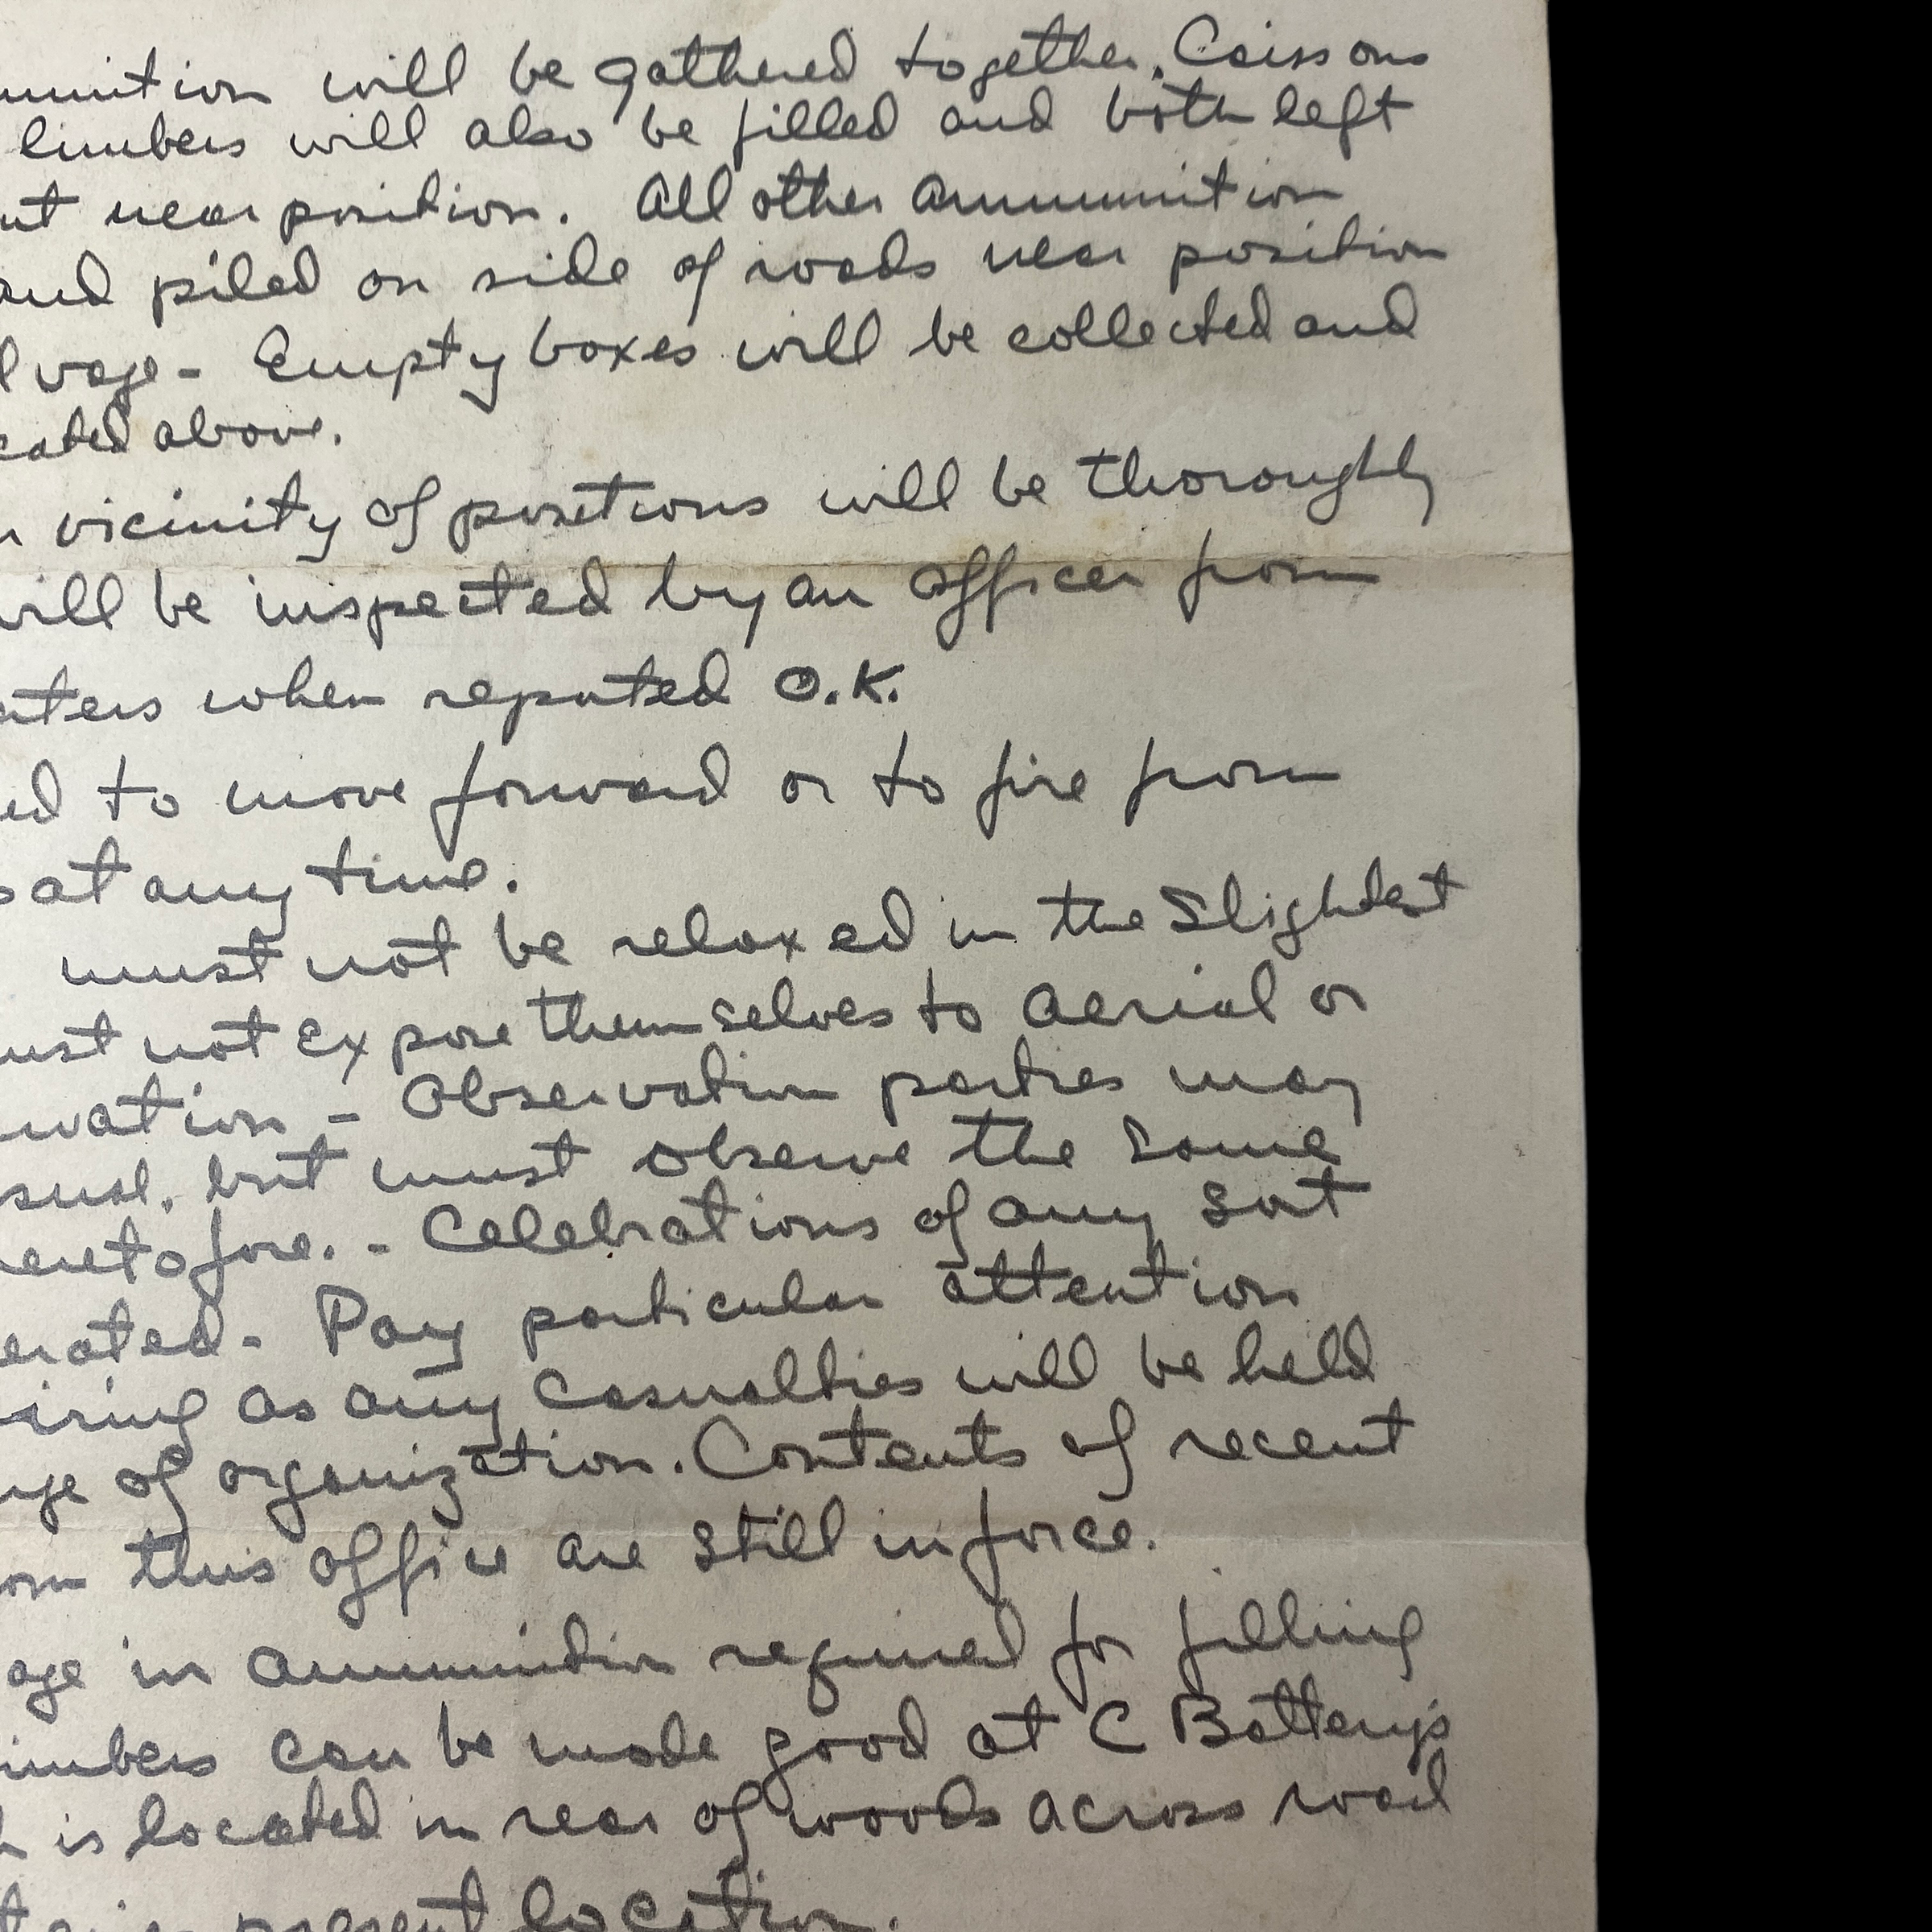 munition will be gathered together. Caissons
limbers will also be filled and both left
ut near position. All other ammunition
and piled on side of roads near position
lvage - Empty boxes will be collected and
cated above.
n vicinity of positions will be thoroughly
will be inspected by an officer from
rters when reported O.K.
ed to move forward or to fire from
s at any time.
must not be relaxed in the slightest
ust not expose themselves to aerial or
rvation - Observation parties may
sual, but must observe the same
heretofore. - Celebrations of any sort
erated - Pay particular attention
iring as any casualties will be held
rge of organization. Contents of recent
om this office are still in force.
age in ammunition required for filling
imbers can be made good at C Battery's
h is located in rear of woods across road
present location.